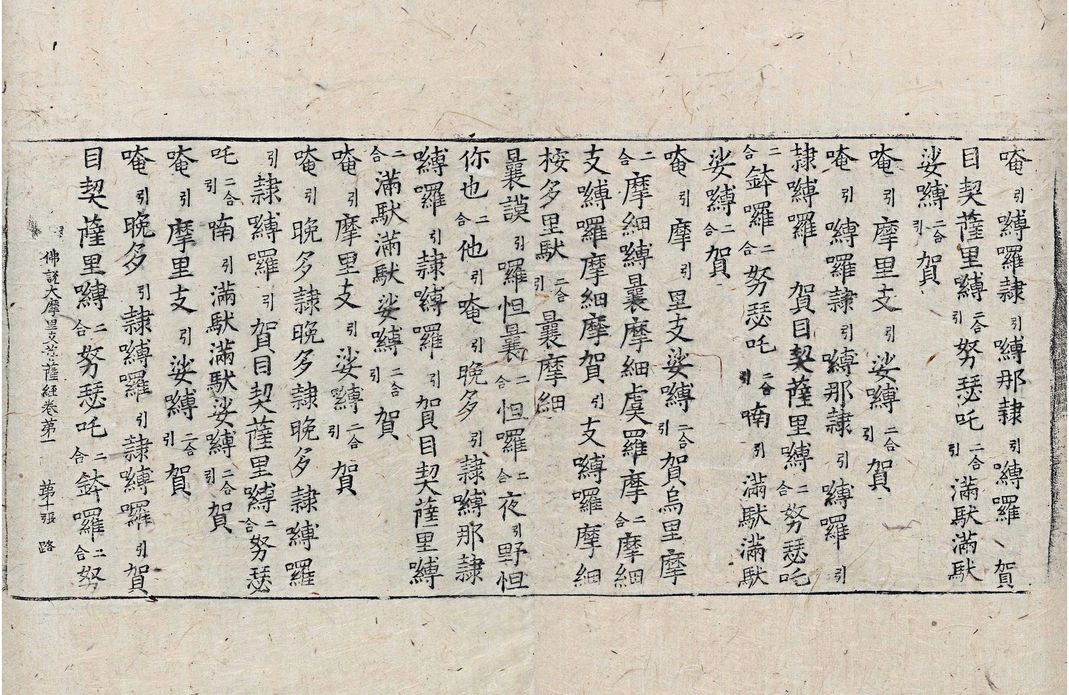 唵引縛羅隷引縛那隷引縛羅賀
目契薩里縛二合引努瑟吒二合引滿馱滿馱
娑縛二合引賀
唵引摩里支引娑縛二合引賀
唵引縛羅隷引縛那隷引縛羅引
隷縛羅賀目契薩里縛二合努瑟吒
二合鉢羅二合努瑟吒二合引喃引滿馱滿馱
娑縛二合賀
唵引摩引里支娑縛二合引賀烏里摩
二合摩細縛曩摩細虞羅摩二合摩細
支縛羅摩細摩賀引支縛羅摩細
桉多里馱二合引曩摩細
曩謨引羅怛曩二合怛羅二合夜引野怛
你也二合他引唵引晚多引隷縛那隷
縛羅引隷縛羅引賀目契薩里縛
二合滿馱滿馱娑縛二合引賀
唵引摩里支引娑縛二合引賀
唵引晚多隷晚多隷晚多隷縛羅
引隷縛羅引賀目契薩里縛二合努瑟
吒二合引喃引滿馱滿馱娑縛二合引賀
唵引摩里支引娑縛二合引賀
唵引晚多引隷縛羅引隷縛羅引賀
佛說大摩里支菩薩經卷第一 第十張 路
目契薩里縛二合努瑟吒二合鉢羅二合努